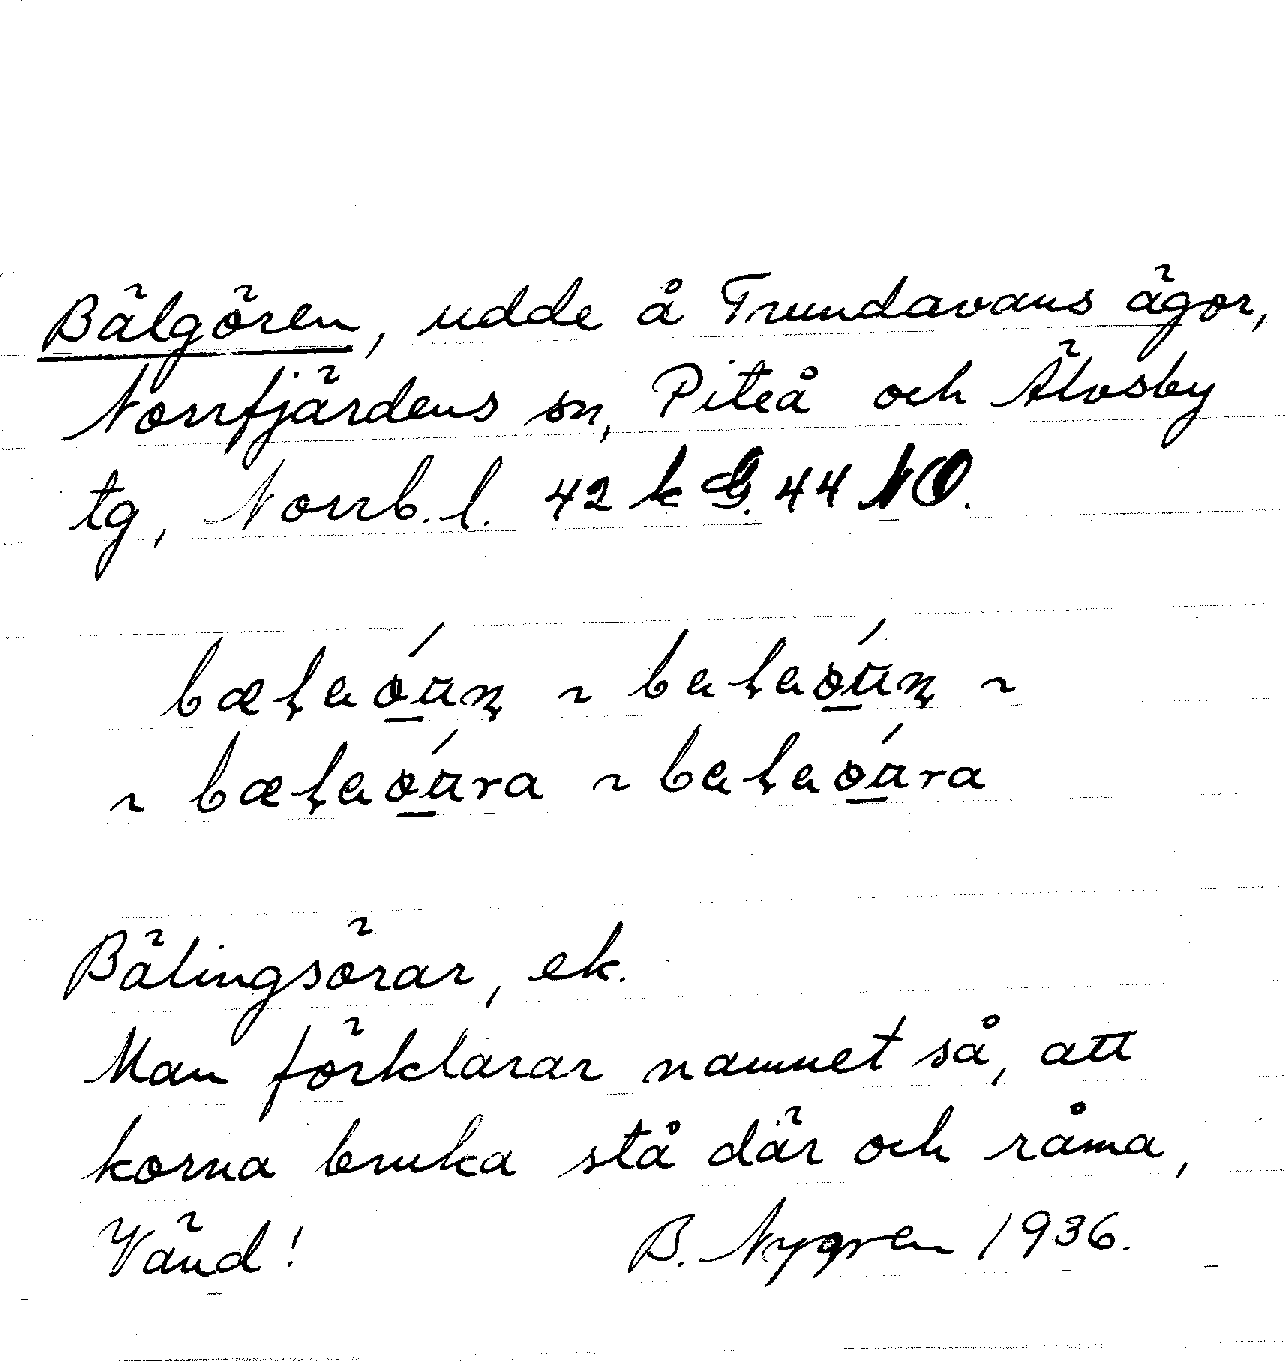 Bälgören, udde å Trundavans ägor,
Norrfjärdens sn, Piteå och Älvsby
tg, Norrb. l. 42 k G. 44 NO.
~
~ ~
Bälingsörar, ek.
Man förklarar namnet så, att
korna bruka stå där och råma,
Vänd! B. Nygren 1936.